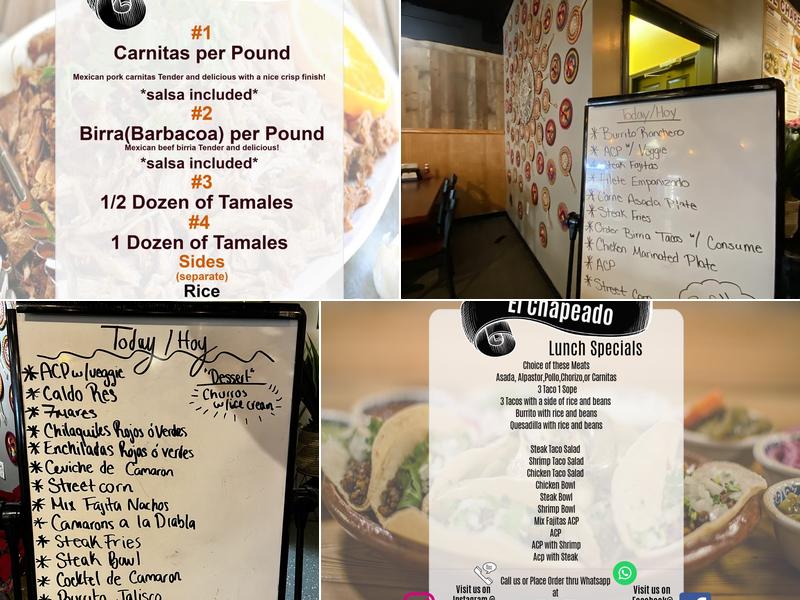 #1
Carnitas per Pound
Mexican pork carnitas Tender and delicious with a nice crisp finish!
*salsa included*
#2
Birra(Barbacoa) per Pound
Mexican beef birria Tender and delicious!
*salsa included*
#3
1/2 Dozen of Tamales
#4
1 Dozen of Tamales
Sides
(separate)
Rice
Today/Hoy
* Burrito Ranchero
* ACP w/ Veggie
* Steak Fajitas
* Filete Empanizado
* Carne Asada Plate
* Steak Fries
* Order Birria Tacos w/ Consume
* Chicken Marinated Plate
* ACP
* Street Corn
Today/Hoy
* ACP w/veggie
* Caldo Res
* 7mares
* Chilaquiles Rojos ó Verdes
* Enchiladas Rojos ó verdes
* Ceviche de Camaron
* Street corn
* Mix Fajita Nachos
* Camarons a la Diabla
* Steak Fries
* Steak Bowl
* Cocktel de Camaron
* Burrito Jalisco
"Dessert"
Churros
w/ice cream
El Chapeado
Lunch Specials
Choice of these Meats
Asada, Alpastor,Pollo,Chorizo,or Carnitas
3 Taco 1 Sope
3 Tacos with a side of rice and beans
Burrito with rice and beans
Quesadilla with rice and beans
Steak Taco Salad
Shrimp Taco Salad
Chicken Taco Salad
Chicken Bowl
Steak Bowl
Shrimp Bowl
Mix Fajitas ACP
ACP
ACP with Shrimp
Acp with Steak
Call us or Place Order thru Whatsapp
at
Visit us on
Instagram@
Visit us on
Facebook@